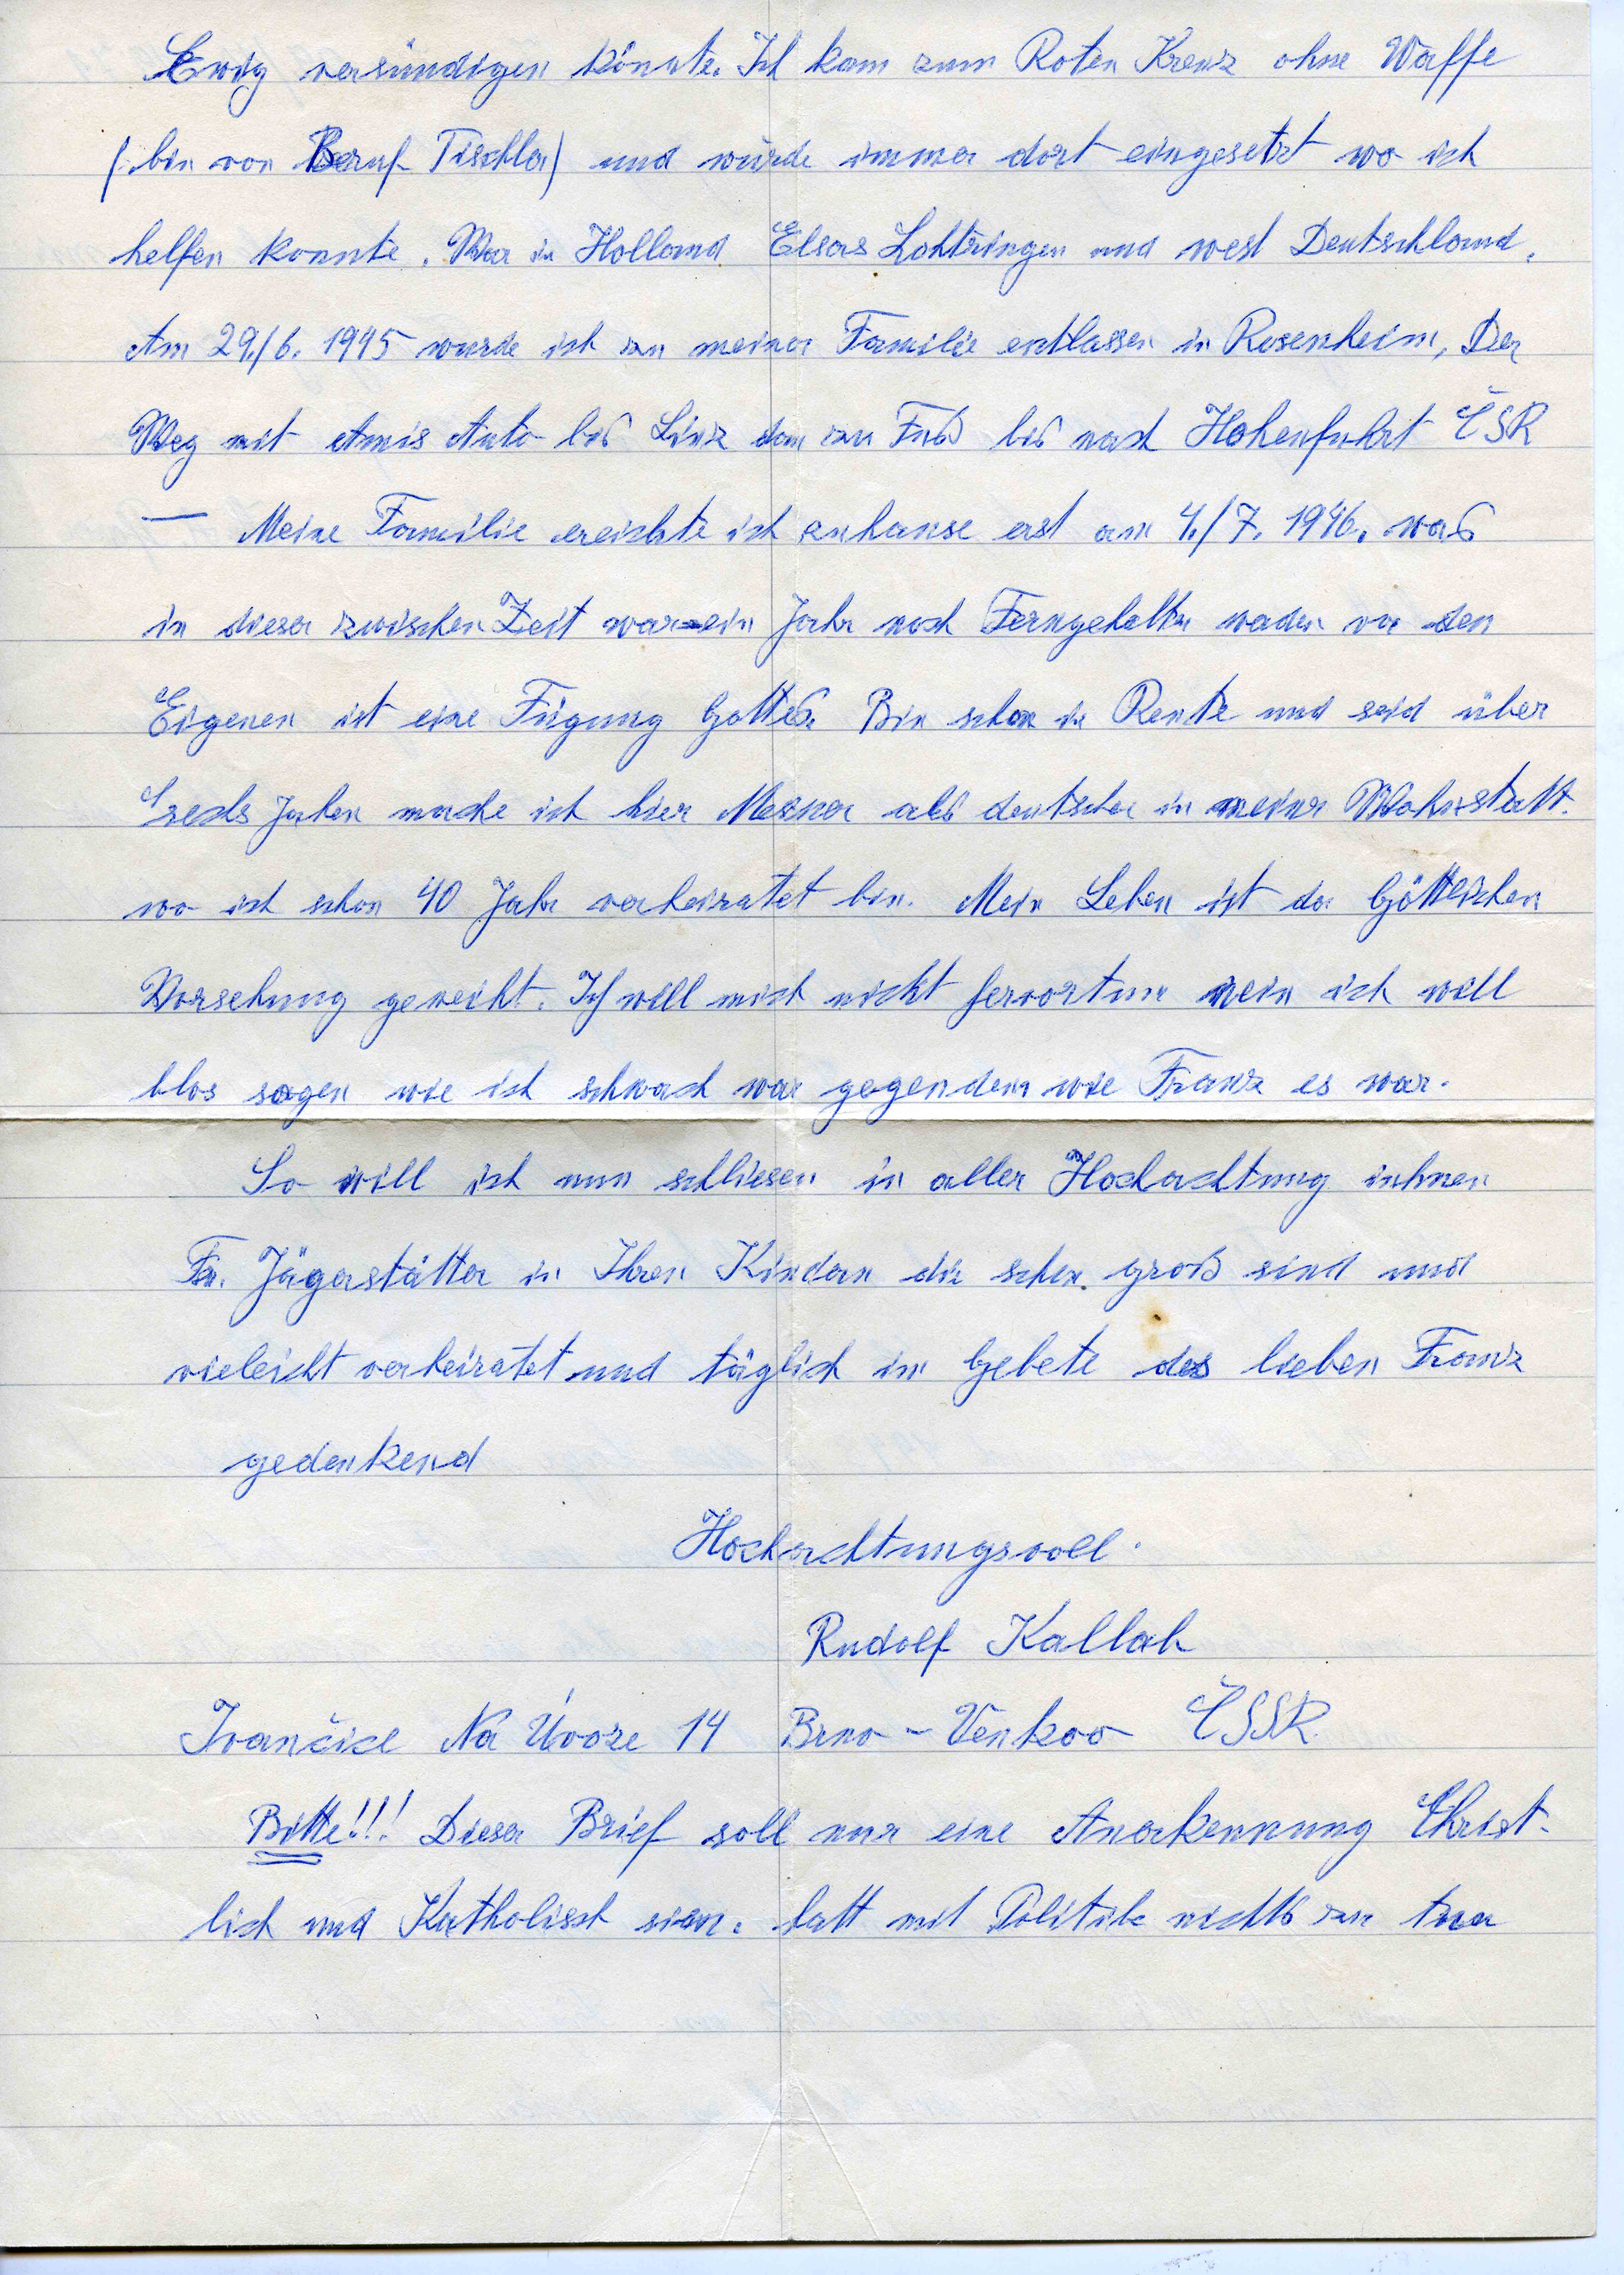 Ewig versündigen könnte. Ich kam zum Roten Kreuz ohne Waffe
(bin von Beruf Tischler) und wurde immer dort eingesetzt wo ich
helfen konnte. War in Holland Elsas Lohtringen und west Deutschland.
Am 29./6. 1945 wurde ich zu meiner Familie entlassen in Rosenheim, Der
Weg mit Amis Auto bis Linz dan zu Fuß bis nach Hohenfuhrt ČSR
— Meine Familie ereichte ich zuhause erst am 4./7. 1946. was
in dieser zwischen Zeit war ein Jahr noch Ferngehalten werden von den
Eigenen ist eine Fügung Gottes. Bin schon in Rente und seid über
sechs Jahren mache ich hier Mesner als deutscher in meiner Wohnstatt.
wo ich schon 40 Jahr verheiratet bin. Mein Leben ist der Göttlichen
Vorsehung geweiht. Ich will mich nicht hervortun nein ich will
blos sagen wie ich schwach war gegendem wie Franz es war.
So will ich nun schliesen in aller Hochachtung inhnen
Fr. Jägerstätter in Ihren Kindern die schon groß sind und
vieleicht verheiratet und täglich im Gebete des lieben Franz
gedenkend
Hochachtungsvoll.
Rudolf Kallab
Ivančice Na Úvoze 14 Brno - Venkov ČSSR
Bitte!!! Dieser Brief soll nur eine Anerkennung Christ-
lich und Katholisch sein. hatt mit Politik nichts zu tun